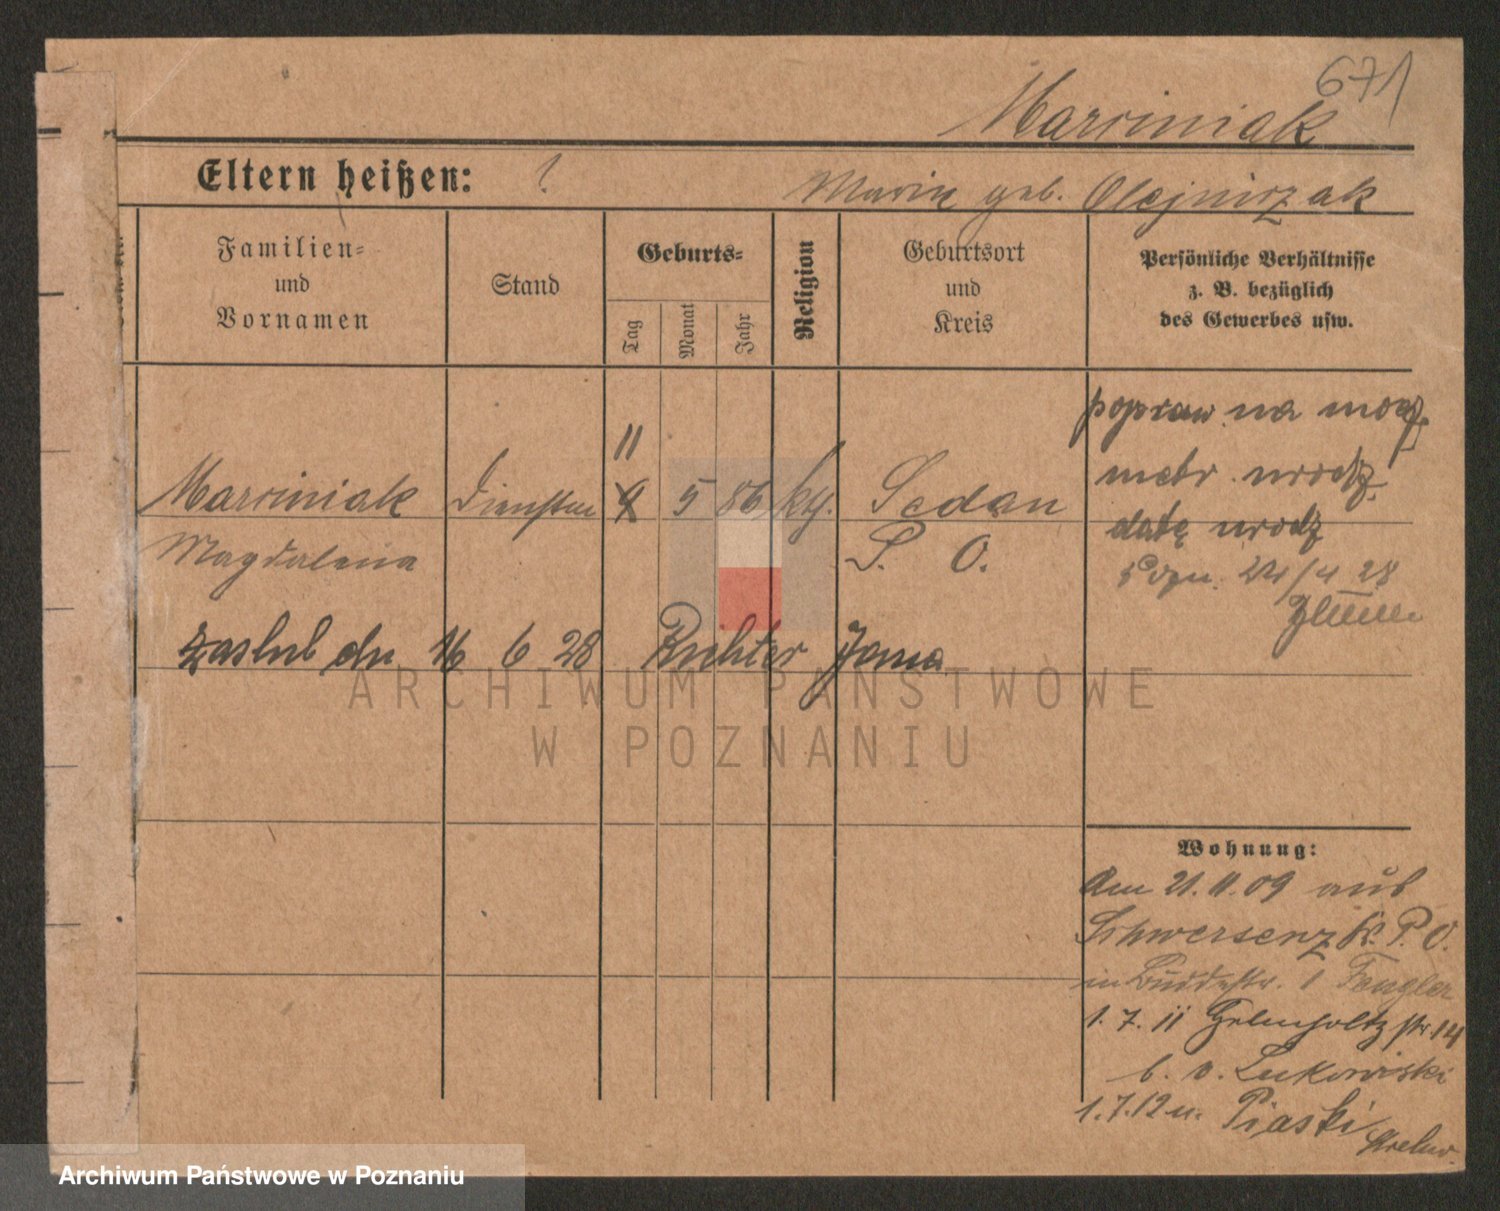 671
Marciniak
Eltern heißen: ? Marie geb. Olejniczak
Familien-
und
Vornamen
Stand
Geburts-
Tag
Monat
Jahr
Religion
Geburtsort
und
Kreis
Persönliche Verhältnisse
z. B. bezüglich
des Gewerbes usw.
popraw. na mocy
metr. urodz.
datę urodz
Pozn. 24/4 28
11
Marciniak 9 5 86 kth. Sedan
Magdalena P. O.
zaślub dn 16 6 28 Richter Jana
Wohnung:
Am 21.11.09 aus
Schwersenz Kr. P. O.
in Buddestr. 1 Fengler
1.7.11 Helmholtzstr 14
b. v. Lukowski
1.7.12 n. Piaski
ARCHIWUM PAŃSTWOWE
W POZNANIU
Archiwum Państwowe w Poznaniu